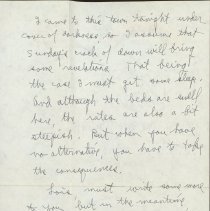 I came to this town tonight under
cover of darkness so I assume that
Sunday's crack of dawn will bring
some revelations. That being
the case I must get some sleep.
And although the beds are swell
here, the rates are also a bit
steepish. But when you have
no alternative, you have to take
the consequences.
Lois must write some more
to you, but in the meantime,